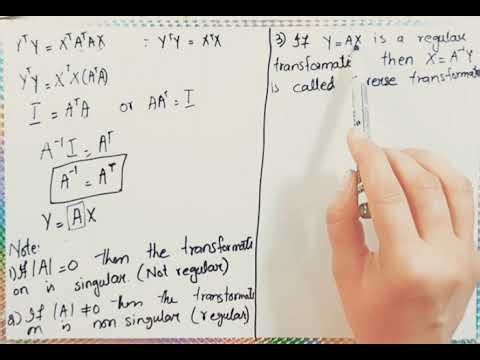 YᵀY = XᵀAᵀAX ∵ YᵀY = XᵀX
YᵀY = XᵀX(AᵀA)
I = AᵀA or AAᵀ = I
A⁻¹I = Aᵀ
A⁻¹ = Aᵀ
Y = AX
Note:
1) If |A| = 0 then the transformati
on is singular. (Not regular)
2) If |A| ≠ 0 then the transformati
on is non singular (regular)
3) If Y = AX is a regular
transformati then X = A⁻¹Y
is called verse transformati